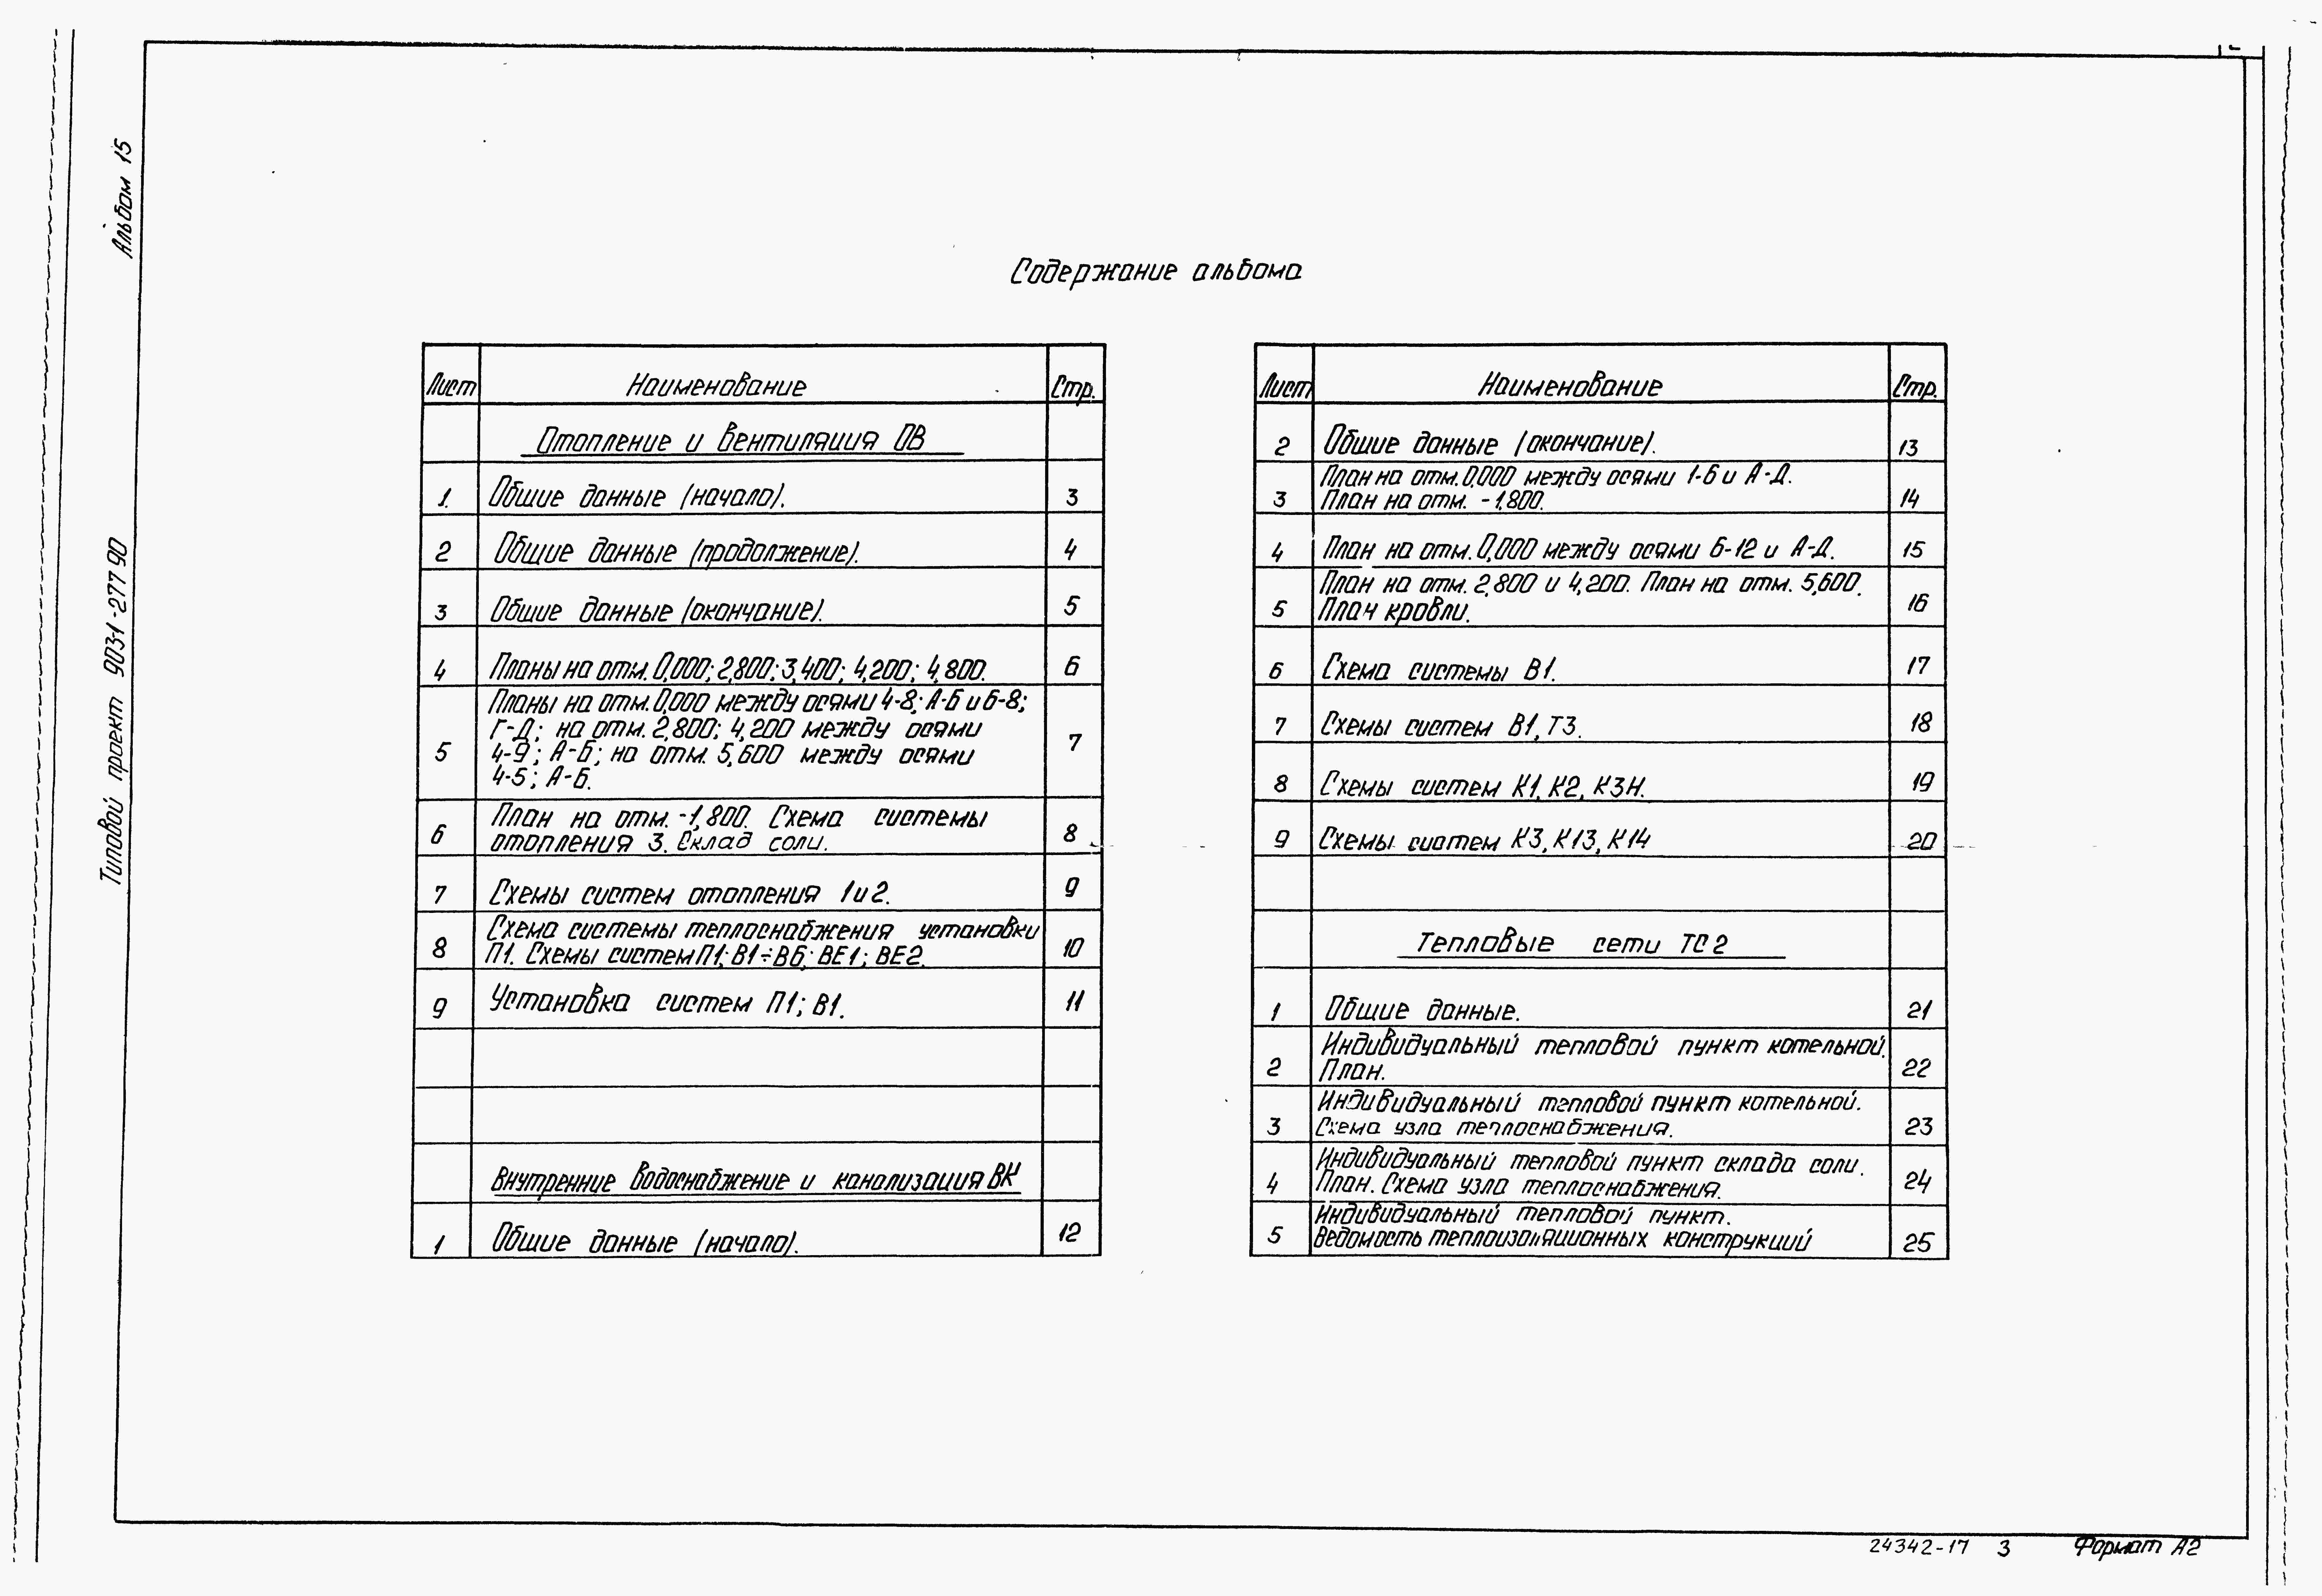 Альбом 15
Типовой проект 903-1-277 90
Содержание альбома
Лист Наименование Стр.
Отопление и вентиляция ОВ
1. Общие данные (начало). 3
2 Общие данные (продолжение). 4
3 Общие данные (окончание). 5
4 Планы на отм. 0,000; 2,800; 3,400; 4,200; 4,800. 6
Планы на отм. 0,000 между осями 4-8; А-Б и 6-8;
Г-Д; на отм. 2,800; 4,200 между осями
5 4-9; А-Б; на отм. 5,600 между осями 7
4-5; А-Б.
План на отм. -1,800. Схема системы
6 отопления 3. Склад соли. 8
7 Схемы систем отопления 1 и 2. 9
Схема системы теплоснабжения установки
8 П1. Схемы систем П1; В1÷В6; ВЕ1; ВЕ2. 10
9 Установка систем П1; В1. 11
Внутренние водоснабжение и канализация ВК
1 Общие данные (начало). 12
Лист Наименование Стр.
2 Общие данные (окончание). 13
План на отм. 0,000 между осями 1-6 и А-Д.
3 План на отм. -1,800. 14
4 План на отм. 0,000 между осями 6-12 и А-Д. 15
План на отм. 2,800 и 4,200. План на отм. 5,600.
5 План кровли. 16
6 Схема системы В1. 17
7 Схемы систем В1, Т3. 18
8 Схемы систем К1, К2, К3Н. 19
9 Схемы систем К3, К13, К14 20
Тепловые сети ТС2
1 Общие данные. 21
Индивидуальный тепловой пункт котельной.
2 План. 22
Индивидуальный тепловой пункт котельной.
3 Схема узла теплоснабжения. 23
Индивидуальный тепловой пункт склада соли.
4 План. Схема узла теплоснабжения. 24
Индивидуальный тепловой пункт.
5 Ведомость теплоизоляционных конструкций 25
24342-17 3 Формат А2